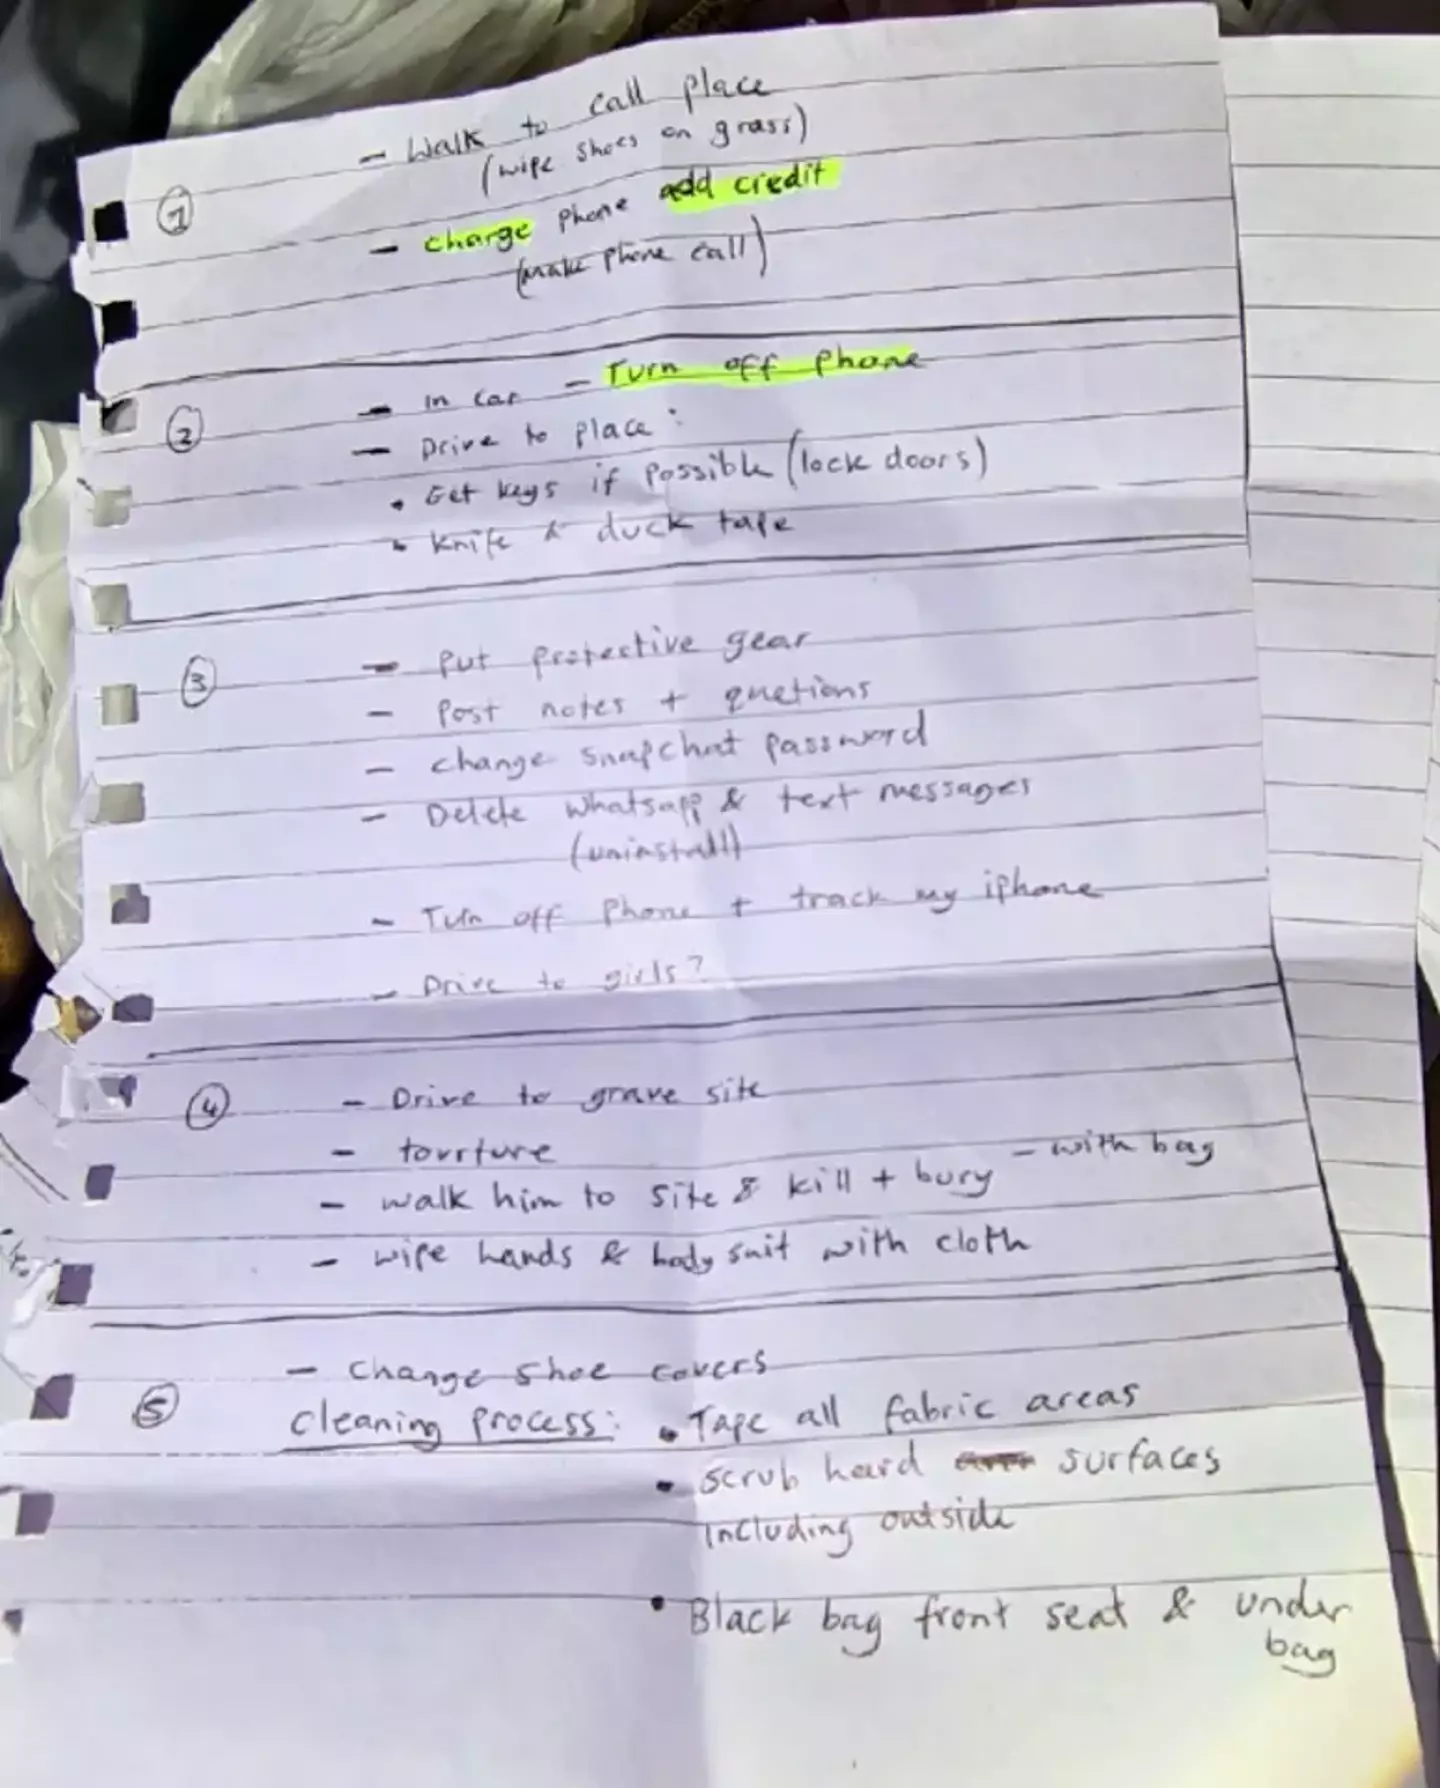 ① - Walk to call place
(wipe shoes on grass)
- charge phone add credit
(make phone call)
② - In car - Turn off phone
- Drive to place:
• Get keys if possible (lock doors)
• knife & duck tape
③ - Put protective gear
- Post notes + quetions
- change snapchat password
- Delete whatsapp & text messages
(uninstall)
- Turn off phone + track my iphone
- Drive to girls?
④ - Drive to grave site
- tourture
- walk him to site & kill + bury - with bag
- wipe hands & body suit with cloth
- Change shoe covers
⑤ Cleaning process: • Tape all fabric areas
• scrub hard surfaces
including outside
• Black bag front seat & under
bag